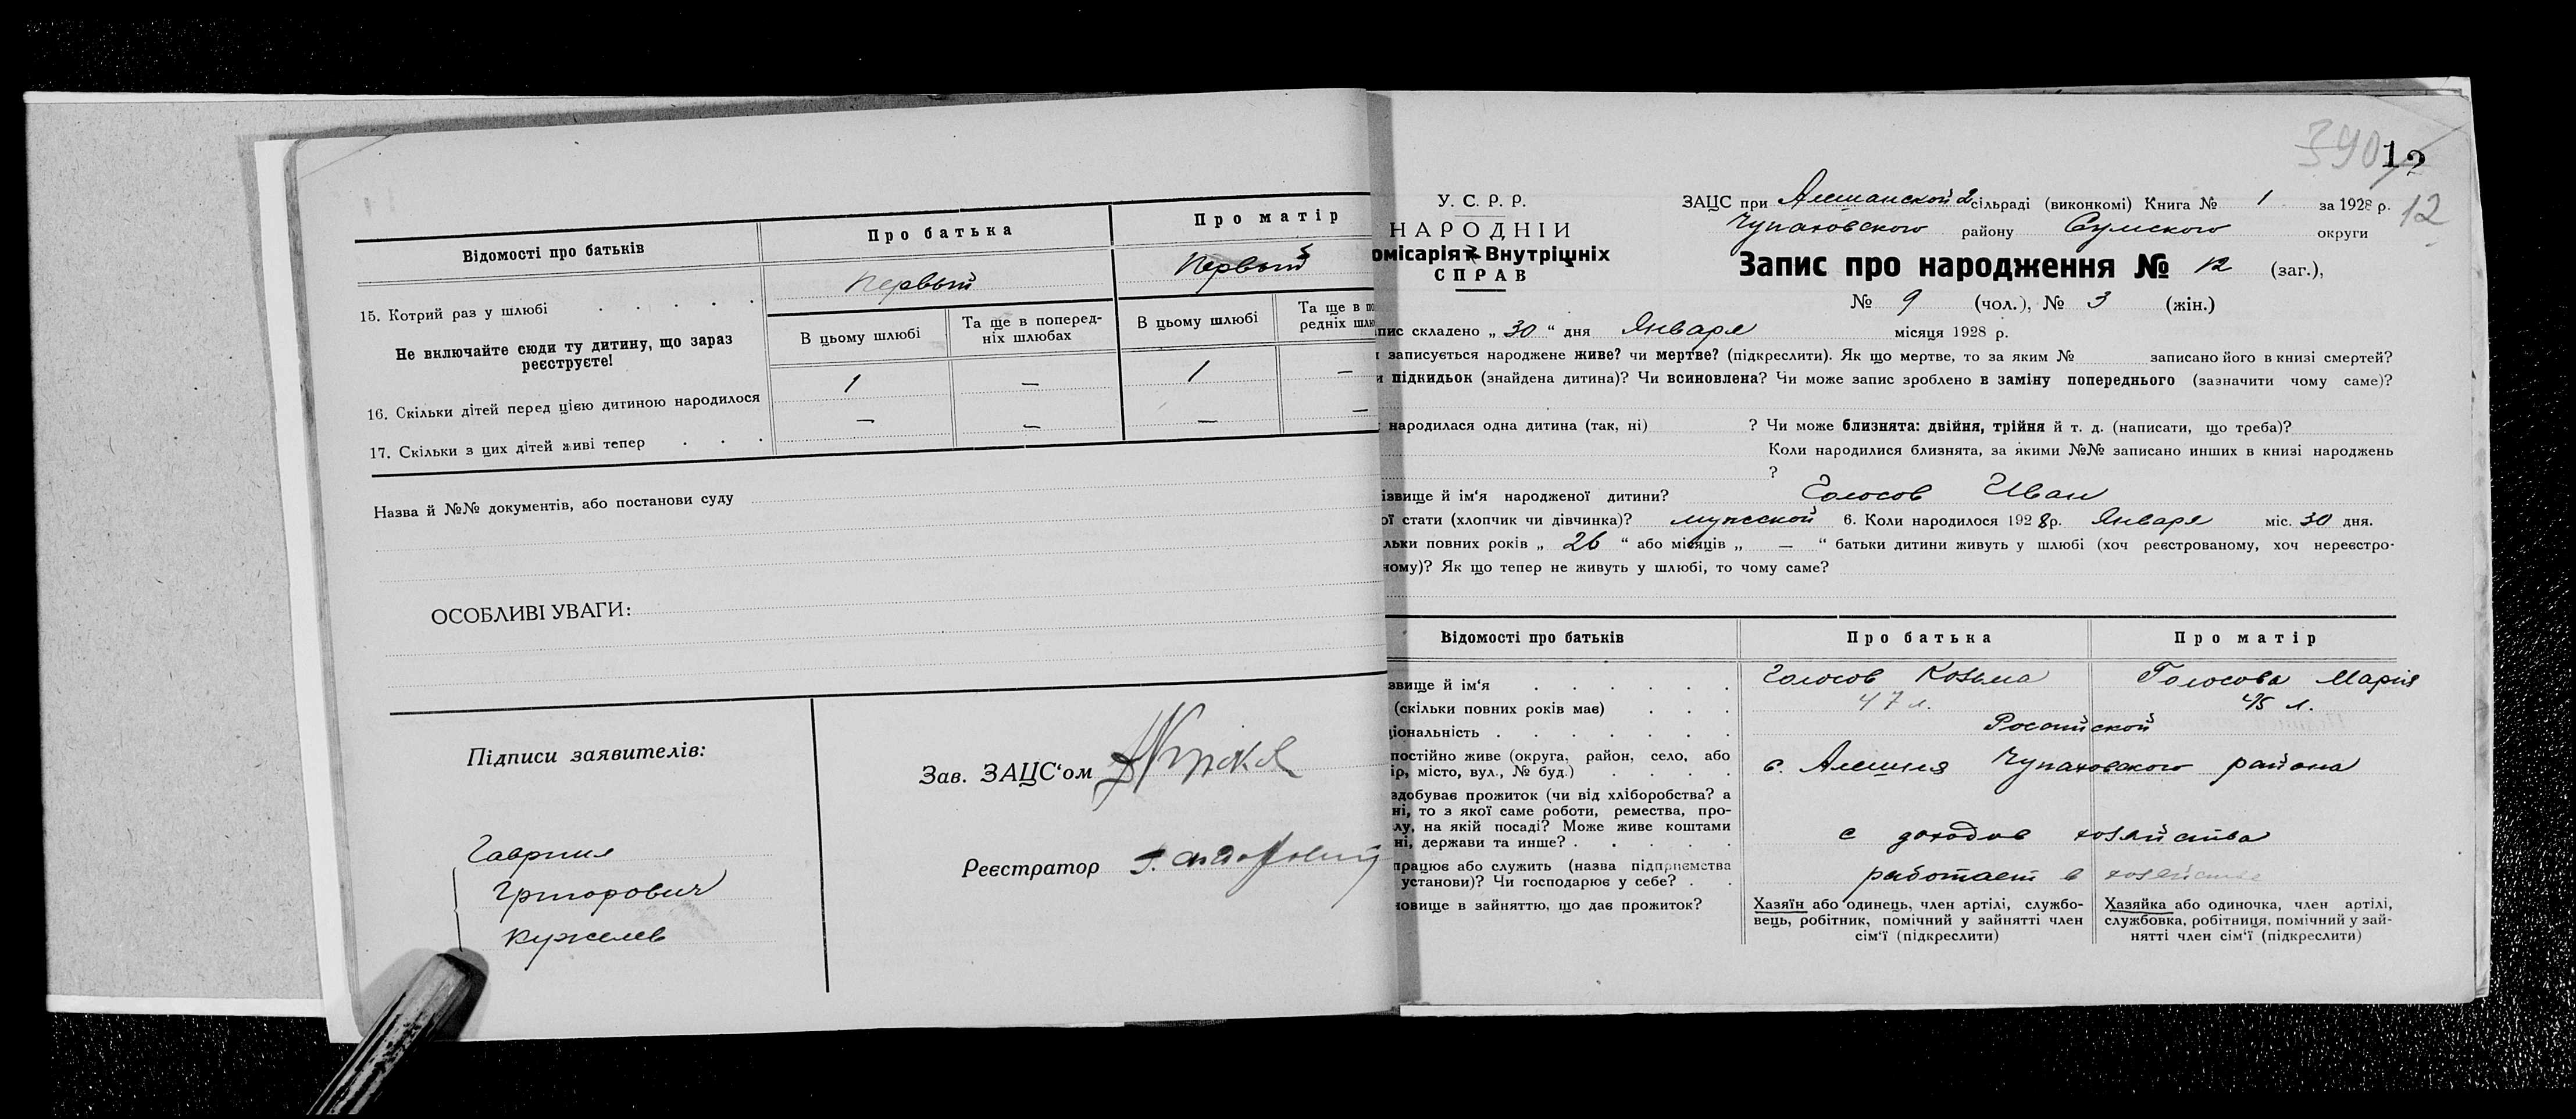 Відомості про батьків
Про батька
Про матір
15. Котрий раз у шлюбі
Первый
Первый
Не включайте сюди ту дитину, що зараз реєструєте!
В цьому шлюбі
Та ще в поперед-
ніх шлюбах
В цьому шлюбі
Та ще в по
редніх шлю
16. Скільки дітей перед цією дитиною народилося
1 — 1 —
17. Скільки з цих дітей живі тепер
— — — —
Назва й №№ документів, або постанови суду
ОСОБЛИВІ УВАГИ:
Підписи заявителів:
Гавриил
Григорович
Кужелев
Зав. ЗАЦС‘ом
Реєстратор
390
12
12
У. С. Р. Р.
НАРОДНІЙ
омісаріят Внутрішніх
СПРАВ
ЗАЦС при Алешанской 2 сільраді (виконкомі) Книга № 1 за 1928 р.
Чупаховского району Сумского округи
Запис про народження № 12 (заг.),
№ 9 (чол.), № 3 (жін.)
пис складено „ 30 “ дня Января місяця 1928 р.
записується народжене живе? чи мертве? (підкреслити). Як що мертве, то за яким № записано його в книзі смертей?
и підкидьок (знайдена дитина)? Чи всиновлена? Чи може запис зроблено в заміну попереднього (зазначити чому саме)?
народилася одна дитина (так, ні) ? Чи може близнята: двійня, трійня й т. д. (написати, що треба)?
Коли народилися близнята, за якими №№ записано инших в книзі народжень
?
ізвище й ім‘я народженої дитини? Голосов Иван
ої стати (хлопчик чи дівчинка)? мужской 6. Коли народилося 1928 р. Января міс. 30 дня.
льки повних років „ 26 “ або місяців „ — “ батьки дитини живуть у шлюбі (хоч реєстрованому, хоч нереєстро-
ному)? Як що тепер не живуть у шлюбі, то чому саме?
Відомості про батьків
Про батька
Про матір
звище й ім‘я
Голосов Козьма
Голосова Мария
(скільки повних років має)
47 л.
45 л.
ціональність
Российской
постійно живе (округа, район, село, або
ір, місто, вул., № буд.)
с. Алешня Чупаховского района
здобуває прожиток (чи від хліборобства? а
ні, то з якої саме роботи, ремества, про-
лу, на якій посаді? Може живе коштами
ні, держави та инше?
с доходов хозяйства
працює або служить (назва підприємства
установи)? Чи господарює у себе?
работает в хозяйстве
новище в зайняттю, що дає прожиток?
Хазяїн або одинець, член артілі, службо-
вець, робітник, помічний у зайнятті член
сім‘ї (підкреслити)
Хазяйка або одиночка, член артілі,
службовка, робітниця, помічний у зай-
нятті член сім‘ї (підкреслити)